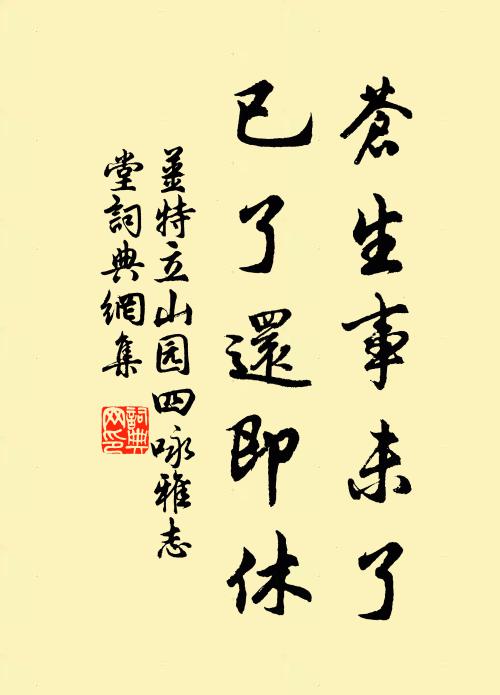 蒼生事未了
已了還即休
姜特立山园四咏雅志
堂詞典網集
詞典網印